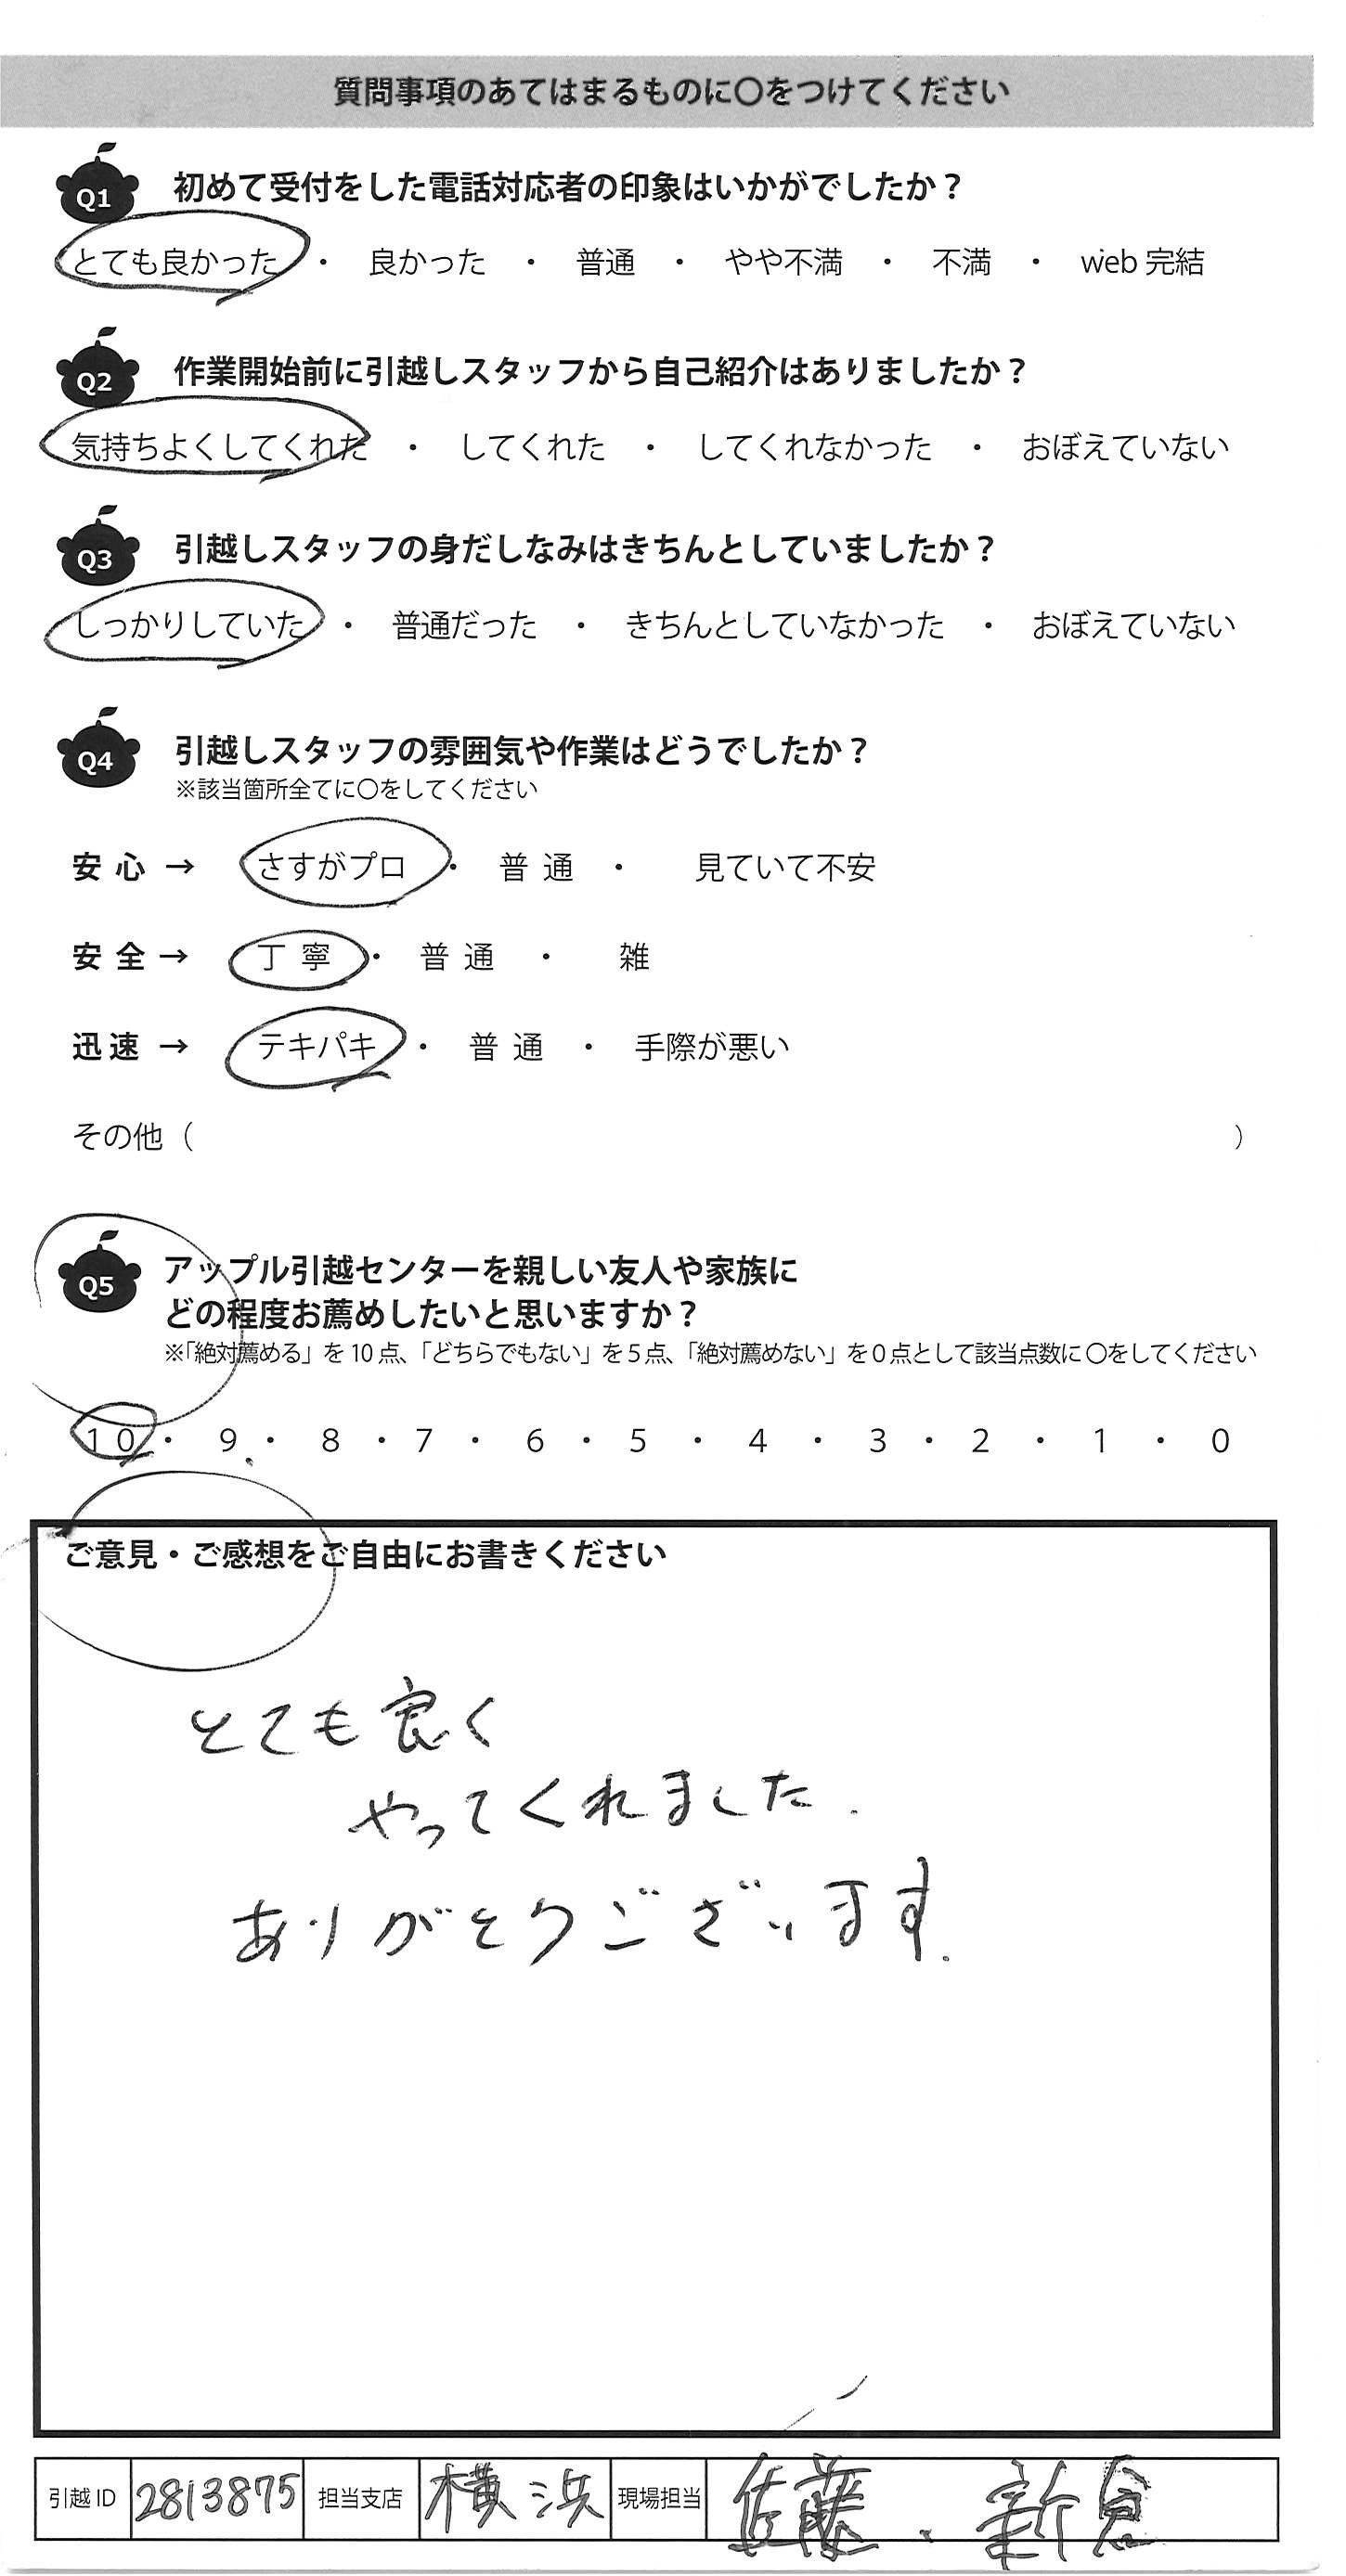 質問事項のあてはまるものに〇をつけてください
Q1 初めて受付をした電話対応者の印象はいかがでしたか？
とても良かった ・ 良かった ・ 普通 ・ やや不満 ・ 不満 ・ web 完結
Q2 作業開始前に引越しスタッフから自己紹介はありましたか？
気持ちよくしてくれた ・ してくれた ・ してくれなかった ・ おぼえていない
Q3 引越しスタッフの身だしなみはきちんとしていましたか？
しっかりしていた ・ 普通だった ・ きちんとしていなかった ・ おぼえていない
Q4 引越しスタッフの雰囲気や作業はどうでしたか？
※該当箇所全てに〇をしてください
安心 → さすがプロ ・ 普通 ・ 見ていて不安
安全 → 丁寧 ・ 普通 ・ 雑
迅速 → テキパキ ・ 普通 ・ 手際が悪い
その他（ ）
Q5 アップル引越センターを親しい友人や家族に
どの程度お薦めしたいと思いますか？
※「絶対薦める」を 10 点、「どちらでもない」を 5 点、「絶対薦めない」を 0 点として該当点数に〇をしてください
10 ・ 9 ・ 8 ・ 7 ・ 6 ・ 5 ・ 4 ・ 3 ・ 2 ・ 1 ・ 0
ご意見・ご感想をご自由にお書きください
とても良く
やってくれました.
ありがとうございます.
引越 ID 2813875 担当支店 横浜 現場担当 佐藤.新倉